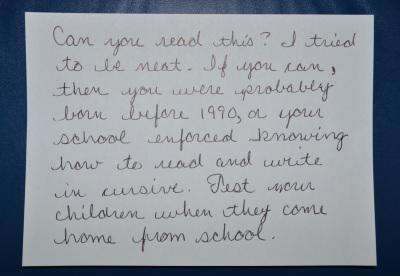 Can you read this? I tried
to be neat. If you can,
then you were probably
born before 1990, or your
school enforced knowing
how to read and write
in cursive. Test your
children when they come
home from school.